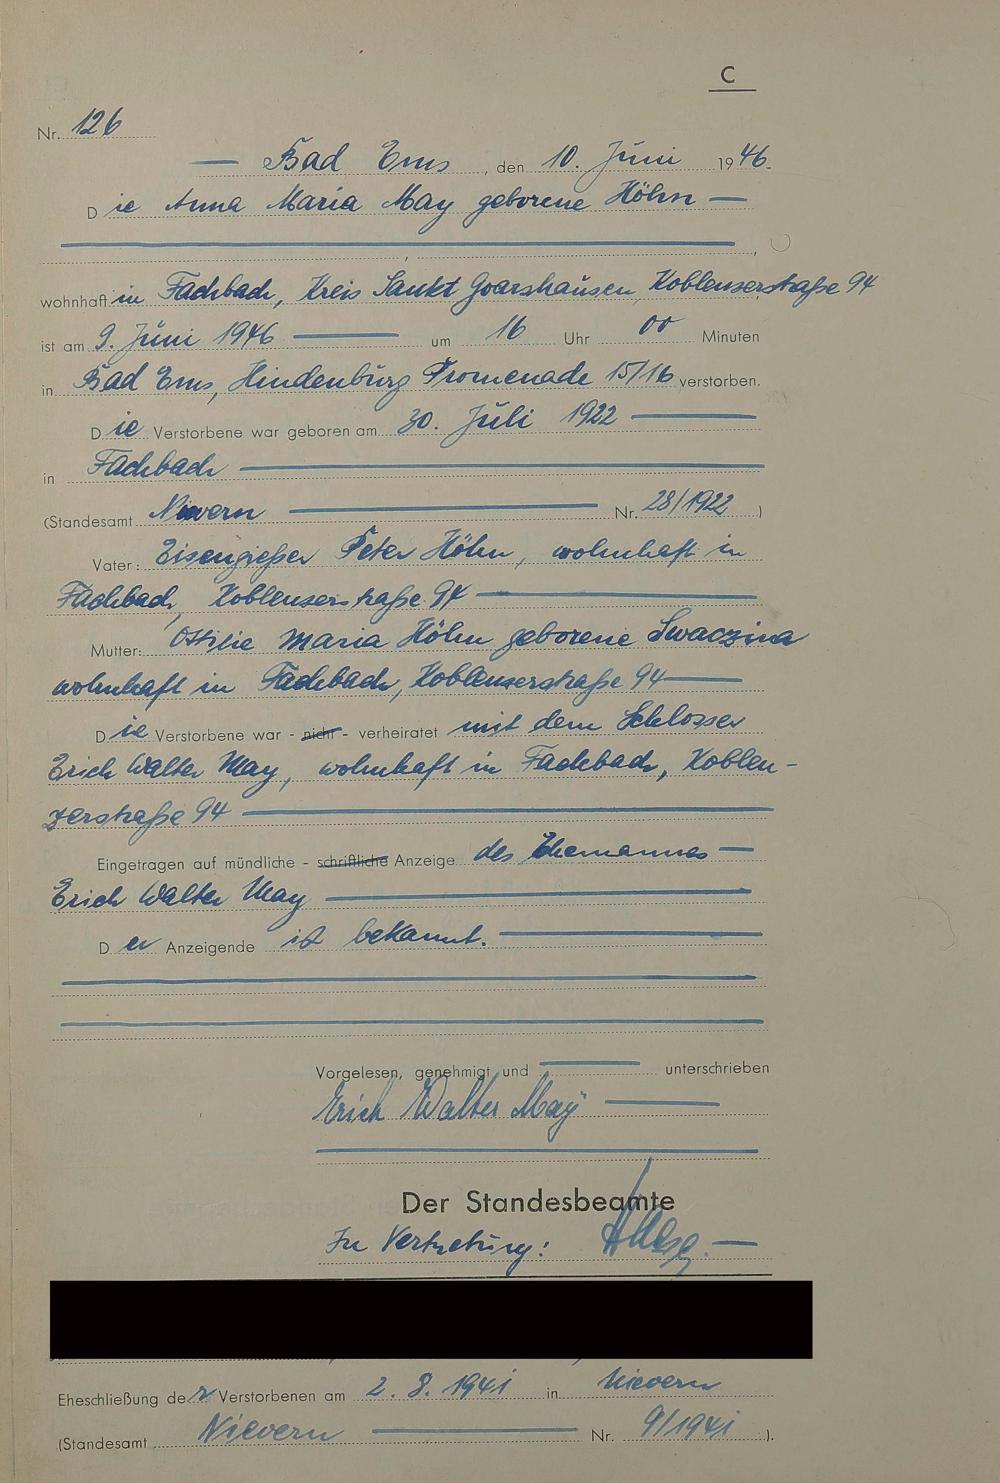 C
Nr. 126
Bad Ems, den 10. Juni 1946.
Die Anna Maria May geborene Höhn
wohnhaft in Fachbach, Kreis Sankt Goarshausen, Koblenzerstraße 94
ist am 9. Juni 1946 um 16 Uhr 00 Minuten
in Bad Ems, Hindenburg Promenade 15/16 verstorben.
Die Verstorbene war geboren am 30. Juli 1922
in Fachbach
(Standesamt Nievern Nr. 28/1922)
Vater: Eisengießer Peter Höhn, wohnhaft in
Fachbach, Koblenzerstraße 94
Mutter: Ottilie Maria Höhn geborene Swaczina
wohnhaft in Fachbach, Koblenzerstraße 94
Die Verstorbene war - nicht - verheiratet mit dem Schlosser
Erich Walter May, wohnhaft in Fachbach, Koblen-
zerstraße 94
Eingetragen auf mündliche - schriftliche Anzeige des Ehemannes
Erich Walter May
Der Anzeigende ist bekannt.
Vorgelesen, genehmigt und unterschrieben
Erich Walter May
Der Standesbeamte
In Vertretung:
Eheschließung der Verstorbenen am 2. 8. 1941 in Nievern
(Standesamt Nievern Nr. 9/1941).